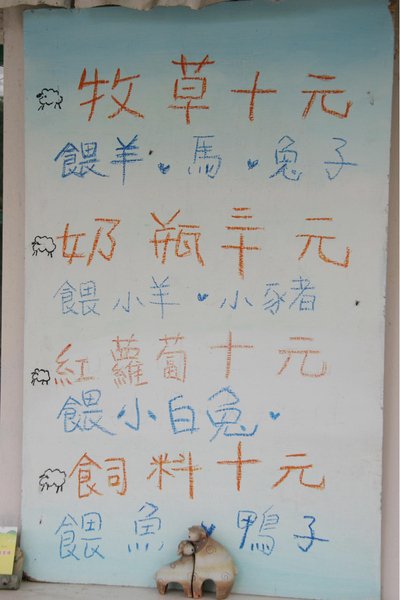 牧草十元
餵羊 馬 兔子
奶瓶三十元
餵小羊 小豬
紅蘿蔔十元
餵小白兔
飼料十元
餵魚 鴨子